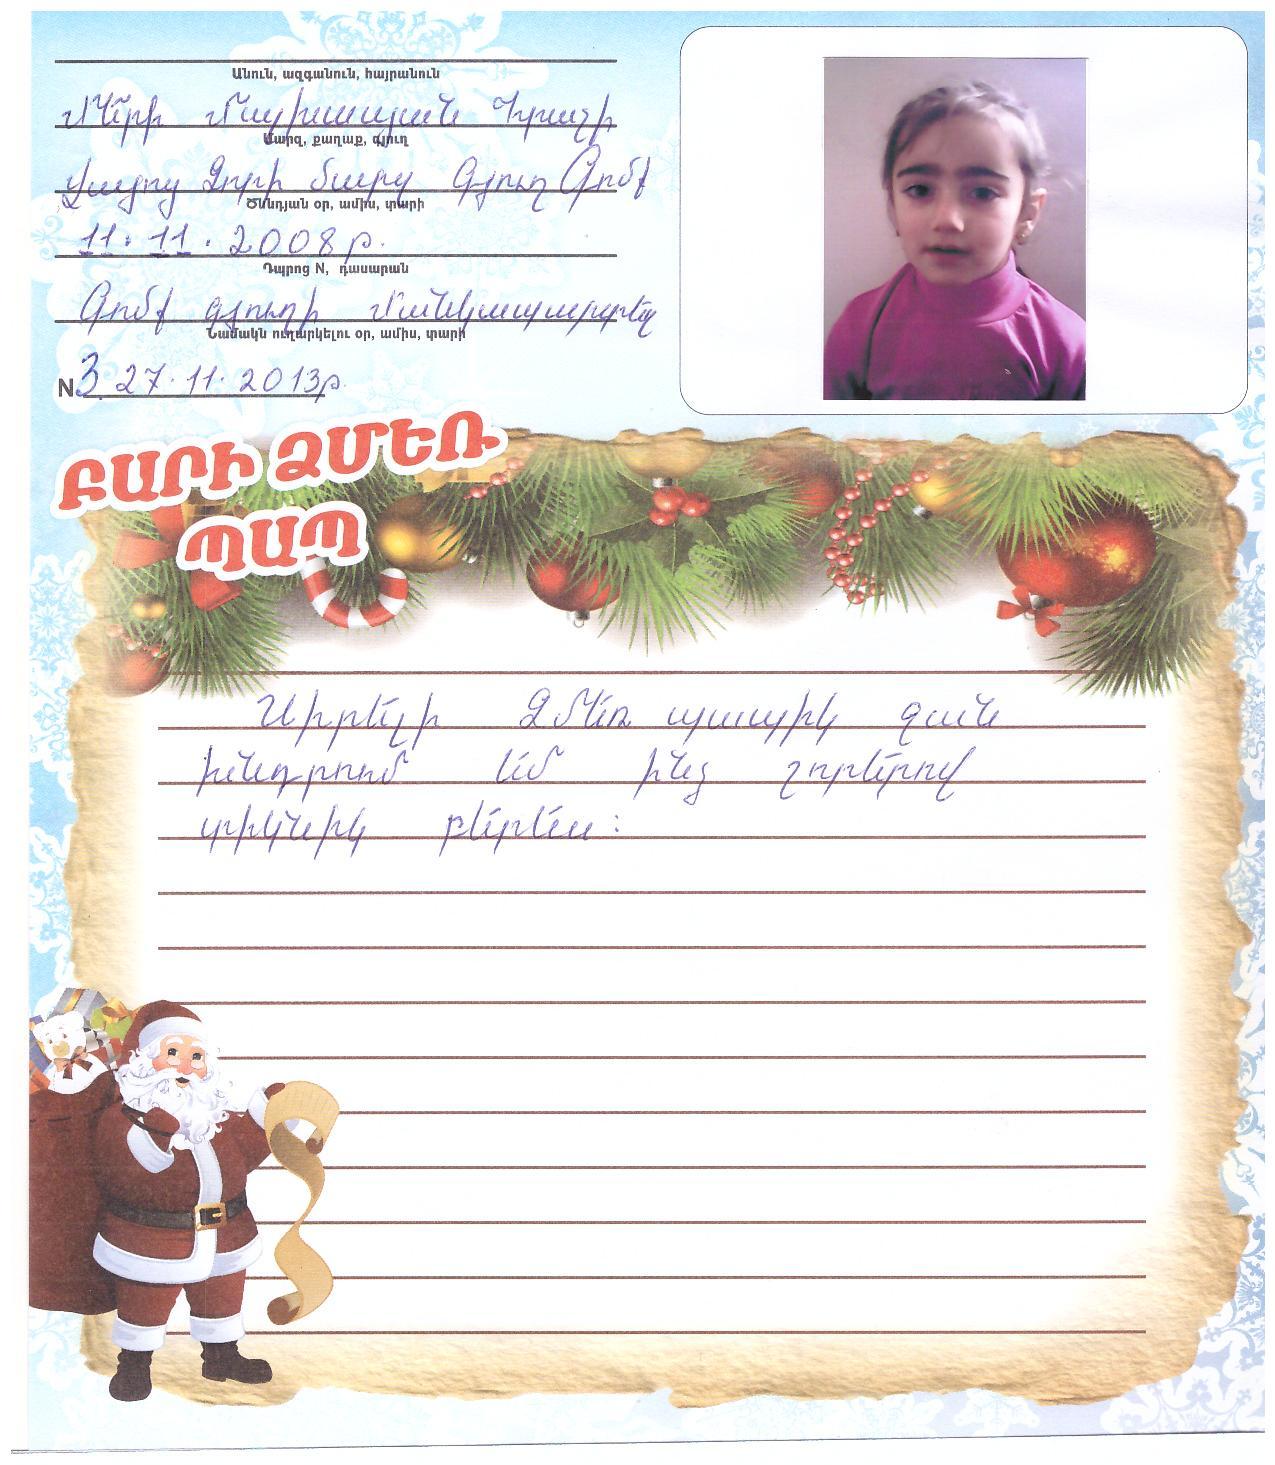 Անուն, ազգանուն, հայրանուն
Մերի Մալխասյան Հրաչի
Մարզ, քաղաք, գյուղ
Վայոց Ձորի մարզ Գյուղ Գոմք
Ծննդյան օր, ամիս, տարի
11.11.2008թ.
Դպրոց N, դասարան
Գոմք գյուղի մանկապարտեզ
Նամակն ուղարկելու օր, ամիս, տարի
N3 27.11.2013թ.
ԲԱՐԻ ՁՄԵՌ
ՊԱՊ
Սիրելի Ձմեռ պապիկ ջան
խնդրում եմ ինձ շորերով
տիկնիկ բերես: